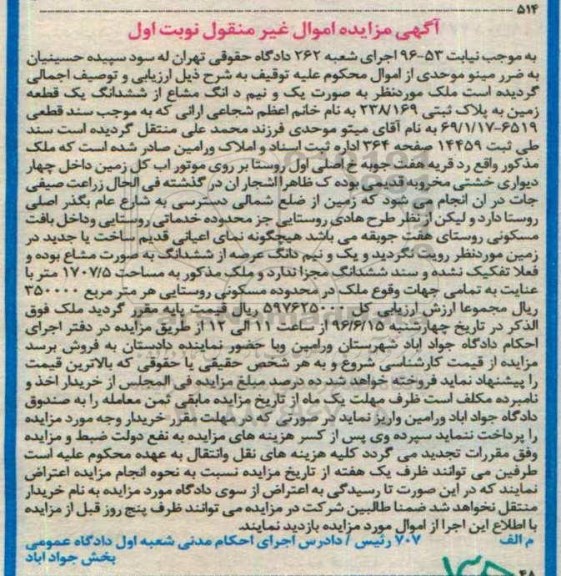 ۵۱۴
آگهی مزایده اموال غیر منقول نوبت اول
به موجب نیابت ۵۳-۹۶ اجرای شعبه ۲۶۲ دادگاه حقوقی تهران له سود سپیده حسینیان
به ضرر مینو موحدی از اموال محکوم علیه توقیف به شرح ذیل ارزیابی و توصیف اجمالی
گردیده است ملک موردنظر به صورت یک و نیم د انگ مشاع از ششدانگ یک قطعه
زمین به پلاک ثبتی ۲۳۸/۱۶۹ به نام خانم اعظم شجاعی ارانی که به موجب سند قطعی
۶۵۱۹-۶۹/۱/۱۷ به نام آقای میتو موحدی فرزند محمد علی منتقل گردیده است سند
طی ثبت ۱۴۴۵۹ صفحه ۳۶۴ اداره ثبت اسناد و املاک ورامین صادر شده است که ملک
مذکور واقع رد قریه هفت جوبه خ اصلی اول روستا بر روی موتور اب کل زمین داخل چهار
دیواری خشتی مخروبه قدیمی بوده ک ظاهرا اشجار ان در گذشته فی الحال زراعت صیفی
جات در ان انجام می شود که زمین از ضلع شمالی دسترسی به شارع عام بگذر اصلی
روستا دارد و لیکن از نظر طرح هادی روستایی جز محدوده خدماتی روستایی وداخل بافت
مسکونی روستای هفت جوبقه می باشد هیچگونه نمای اعیانی قدیم ساخت یا جدید در
زمین موردنظر رویت نگردید و یک و نیم دانگ عرصه از ششدانگ به صورت مشاع بوده و
فعلا تفکیک نشده و سند ششدانگ مجزا ندارد و ملک مذکور به مساحت ۱۷۰۷/۵ متر با
عنایت به تمامی جهات وقوع ملک در محدوده مسکونی روستایی هر متر مربع ۳۵۰۰۰۰
ریال مجموعا ارزش ارزیابی کل ۵۹۷۶۲۵۰۰۰ ریال قیمت پایه مقرر گردید ملک فوق
الذکر در تاریخ چهارشنبه ۹۶/۶/۱۵ از ساعت ۱۱ الی ۱۲ از طریق مزایده در دفتر اجرای
احکام دادگاه جواد اباد شهرستان ورامین وبا حضور نماینده دادستان به فروش برسد
مزایده از قیمت کارشناسی شروع و به هر شخص حقیقی یا حقوقی که بالاترین قیمت
را پیشنهاد نماید فروخته خواهد شد ده درصد مبلغ مزایده فی المجلس از خریدار اخذ و
نامبرده مکلف است ظرف مهلت یک ماه از تاریخ مزایده مابقی ثمن معامله را به صندوق
دادگاه جواد اباد ورامین واریز نماید در صورتی که در مهلت مقرر خریدار وجه مورد مزایده
را پرداخت ننماید سپرده وی پس از کسر هزینه های مزایده به نفع دولت ضبط و مزایده
وفق مقررات تجدید می گردد کلیه هزینه های نقل وانتقال به عهده محکوم علیه است
طرفین می توانند ظرف یک هفته از تاریخ مزایده نسبت به نحوه انجام مزایده اعتراض
نمایند که در این صورت تا رسیدگی به اعتراض از سوی دادگاه مورد مزایده به نام خریدار
منتقل نخواهد شد ضمنا طالبین شرکت در مزایده می توانند ظرف پنج روز قبل از مزایده
با اطلاع این اجرا از اموال مورد مزایده بازدید نمایند.
م الف ۷۰۷ رئیس / دادرس اجرای احکام مدنی شعبه اول دادگاه عمومی
بخش جواد اباد